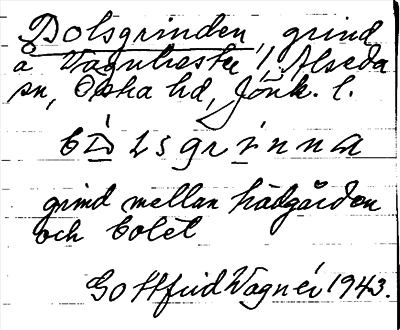 Bolsgrinden, grind
å Vagnhester i Alseda
sn, Östra hd, Jönk. l.
bolsgrinna
grind mellan hädgården
och bolet
Gottfrid Wagnér 1943.